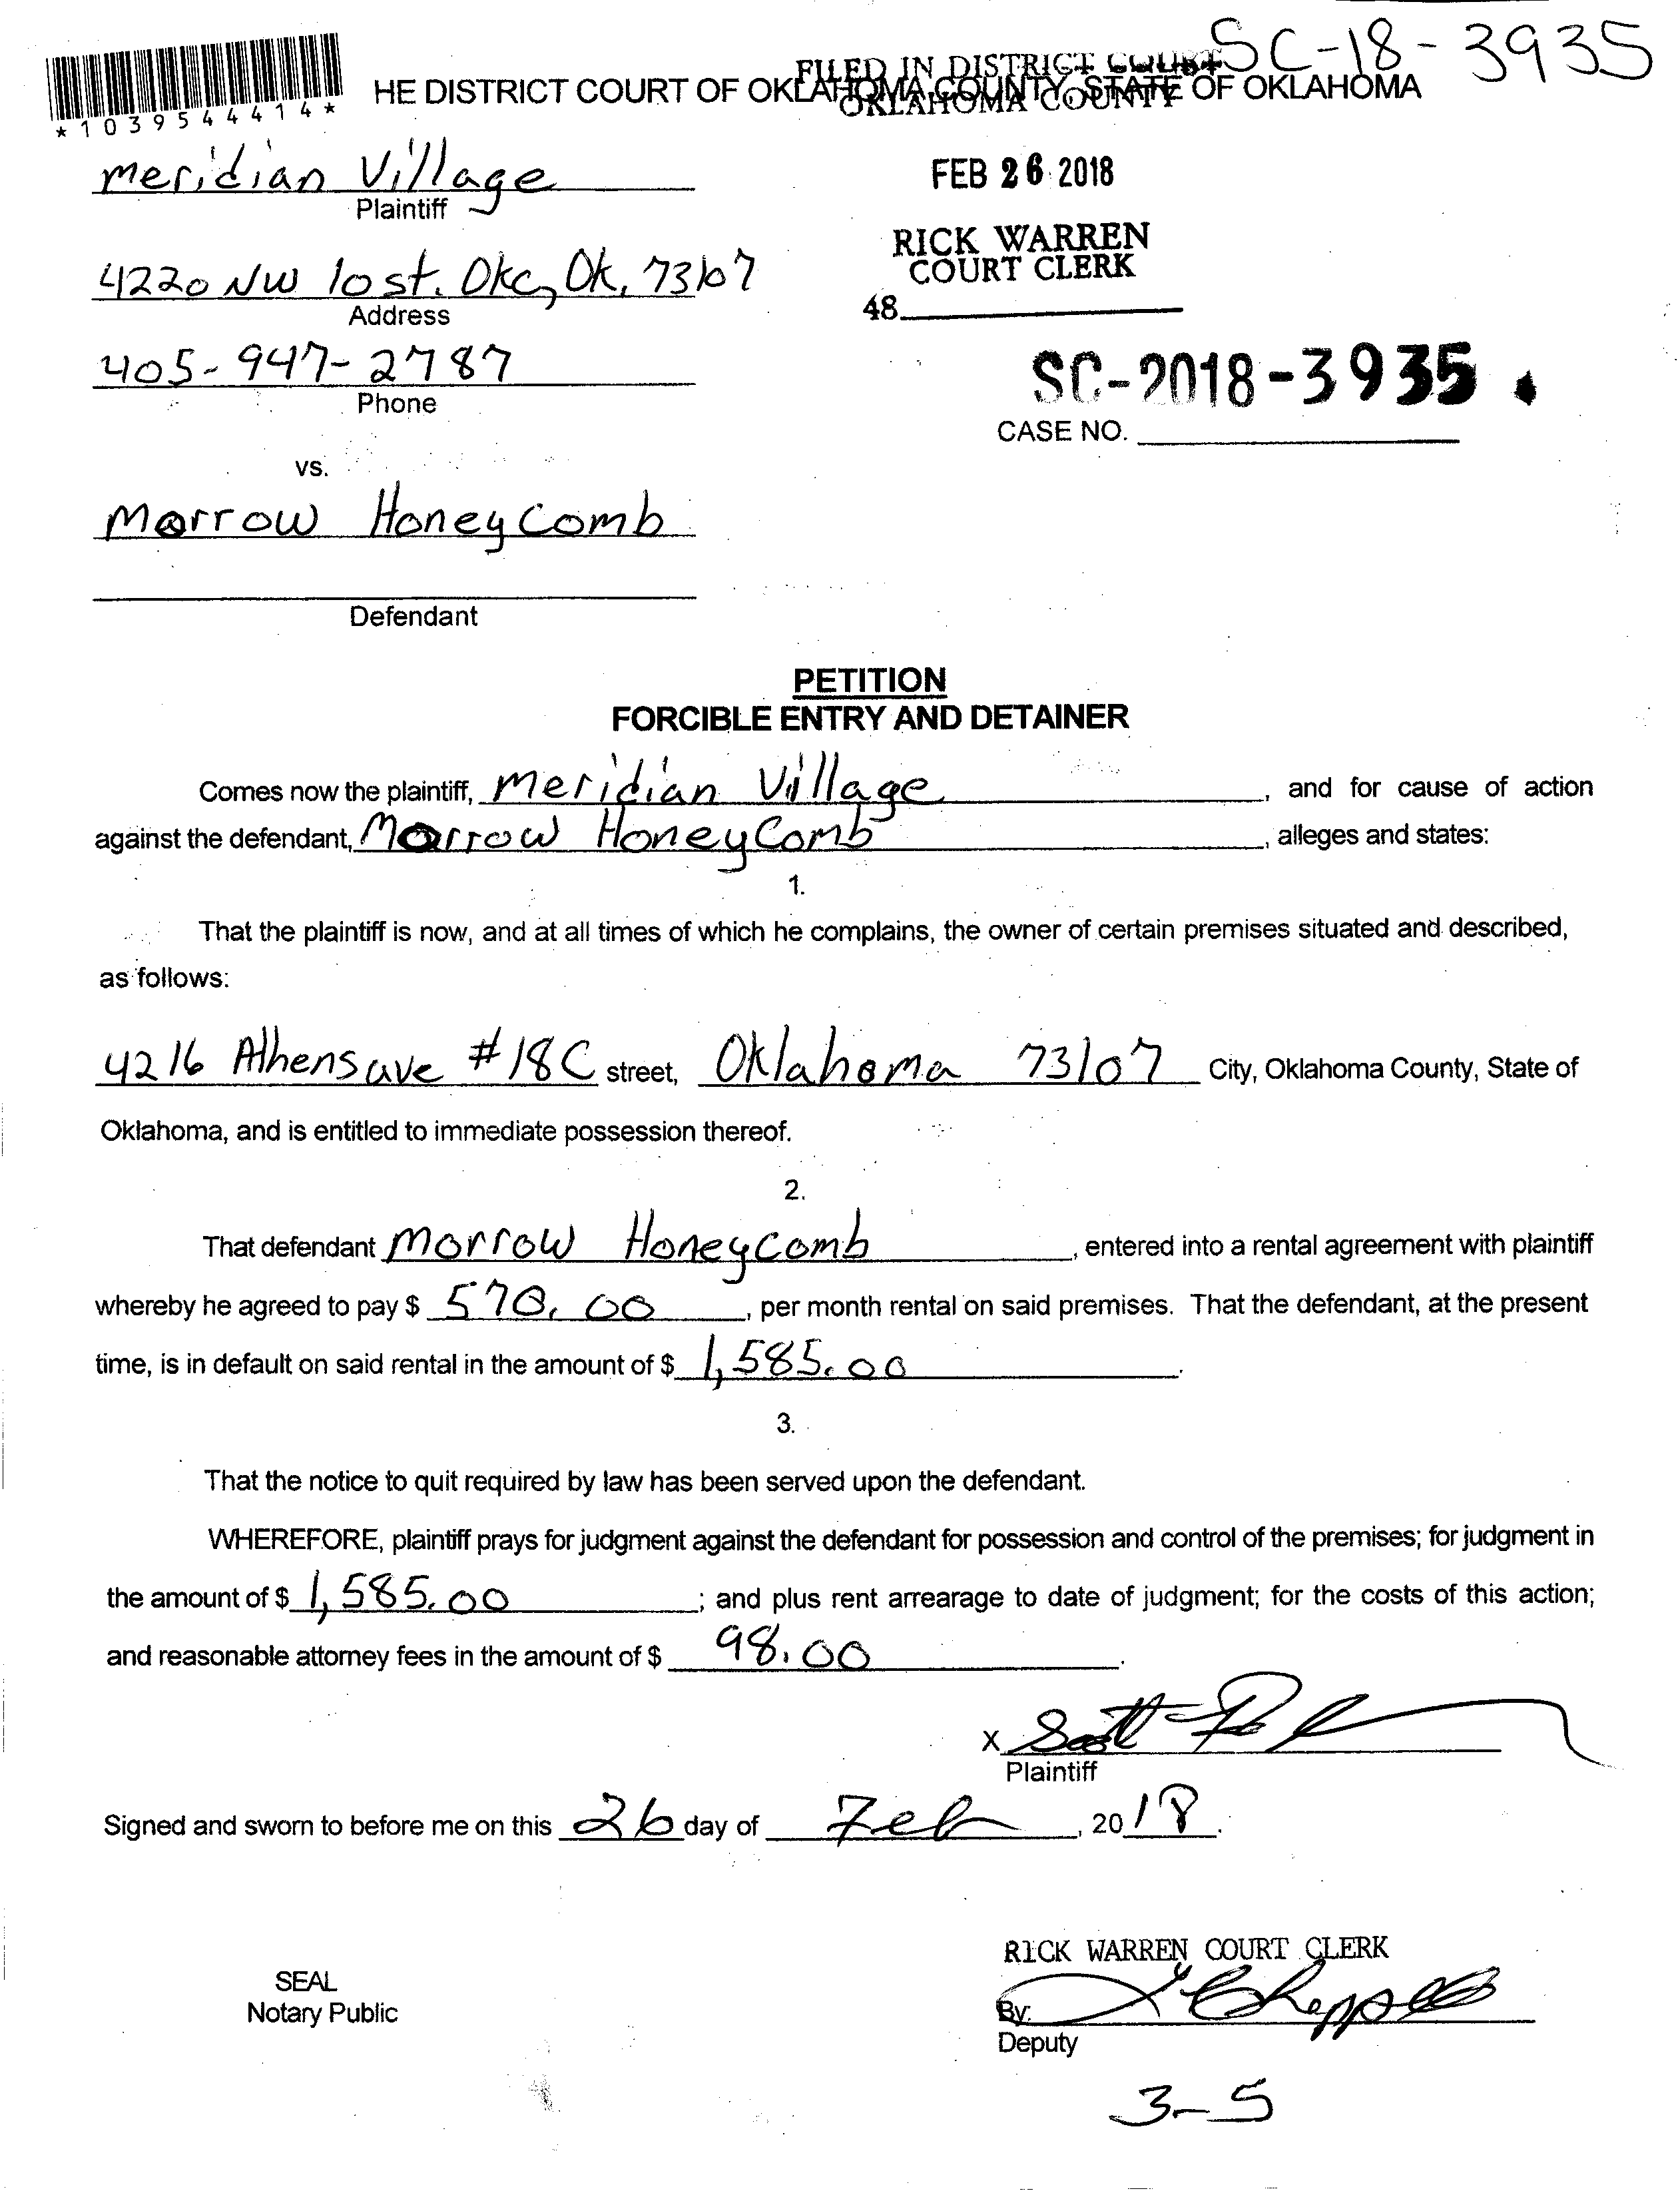 SC-18-3935
*1039544414*
HE DISTRICT COURT OF OKLAHOMA COUNTY, STATE OF OKLAHOMA
FILED IN DISTRICT COURT
OKLAHOMA COUNTY
meridian Village
Plaintiff
FEB 26 2018
RICK WARREN
COURT CLERK
48
4220 NW 10 st. Okc, Ok, 73107
Address
405-947-2787
Phone
SC-2018-3935
CASE NO.
vs.
Morrow HoneyComb
Defendant
PETITION
FORCIBLE ENTRY AND DETAINER
Comes now the plaintiff, meridian Village, and for cause of action
against the defendant, Morrow HoneyComb, alleges and states:
1.
That the plaintiff is now, and at all times of which he complains, the owner of certain premises situated and described,
as follows:
4216 Athens ave #18C street, Oklahoma 73107 City, Oklahoma County, State of
Oklahoma, and is entitled to immediate possession thereof.
2.
That defendant morrow Honeycomb, entered into a rental agreement with plaintiff
whereby he agreed to pay $ 570.00, per month rental on said premises. That the defendant, at the present
time, is in default on said rental in the amount of $ 1,585.00.
3.
That the notice to quit required by law has been served upon the defendant.
WHEREFORE, plaintiff prays for judgment against the defendant for possession and control of the premises; for judgment in
the amount of $ 1,585.00; and plus rent arrearage to date of judgment; for the costs of this action;
and reasonable attorney fees in the amount of $ 98.00.
X Scott
Plaintiff
Signed and sworn to before me on this 26 day of Feb, 2018.
RICK WARREN COURT CLERK
SEAL
Notary Public
By:
Deputy
3-5